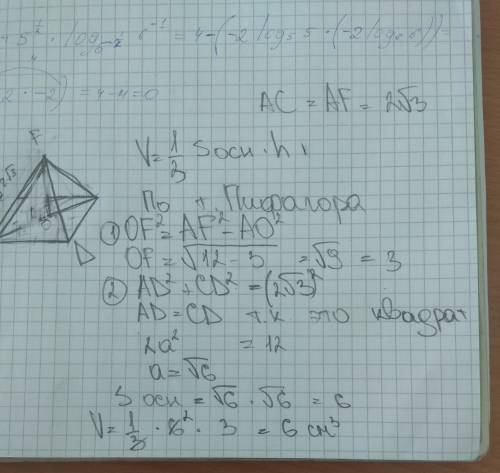 5^½ · log 6^-1 = 4-(-2 log₅ 5 · (-2 log₆ 6)) =
2 · -2) = 4-4=0
AC = AF = 2√3
V = 1/3 S осн · h
F
2√3
По т. Пифагора
① OF² = AF² - AO²
OF = √12 - 3 = √9 = 3
D
② AD² + CD² = (2√3)²
AD = CD т.к это квадрат
2a² = 12
a = √6
S осн = √6 · √6 = 6
V = 1/3 · 6² · 3 = 6 см³